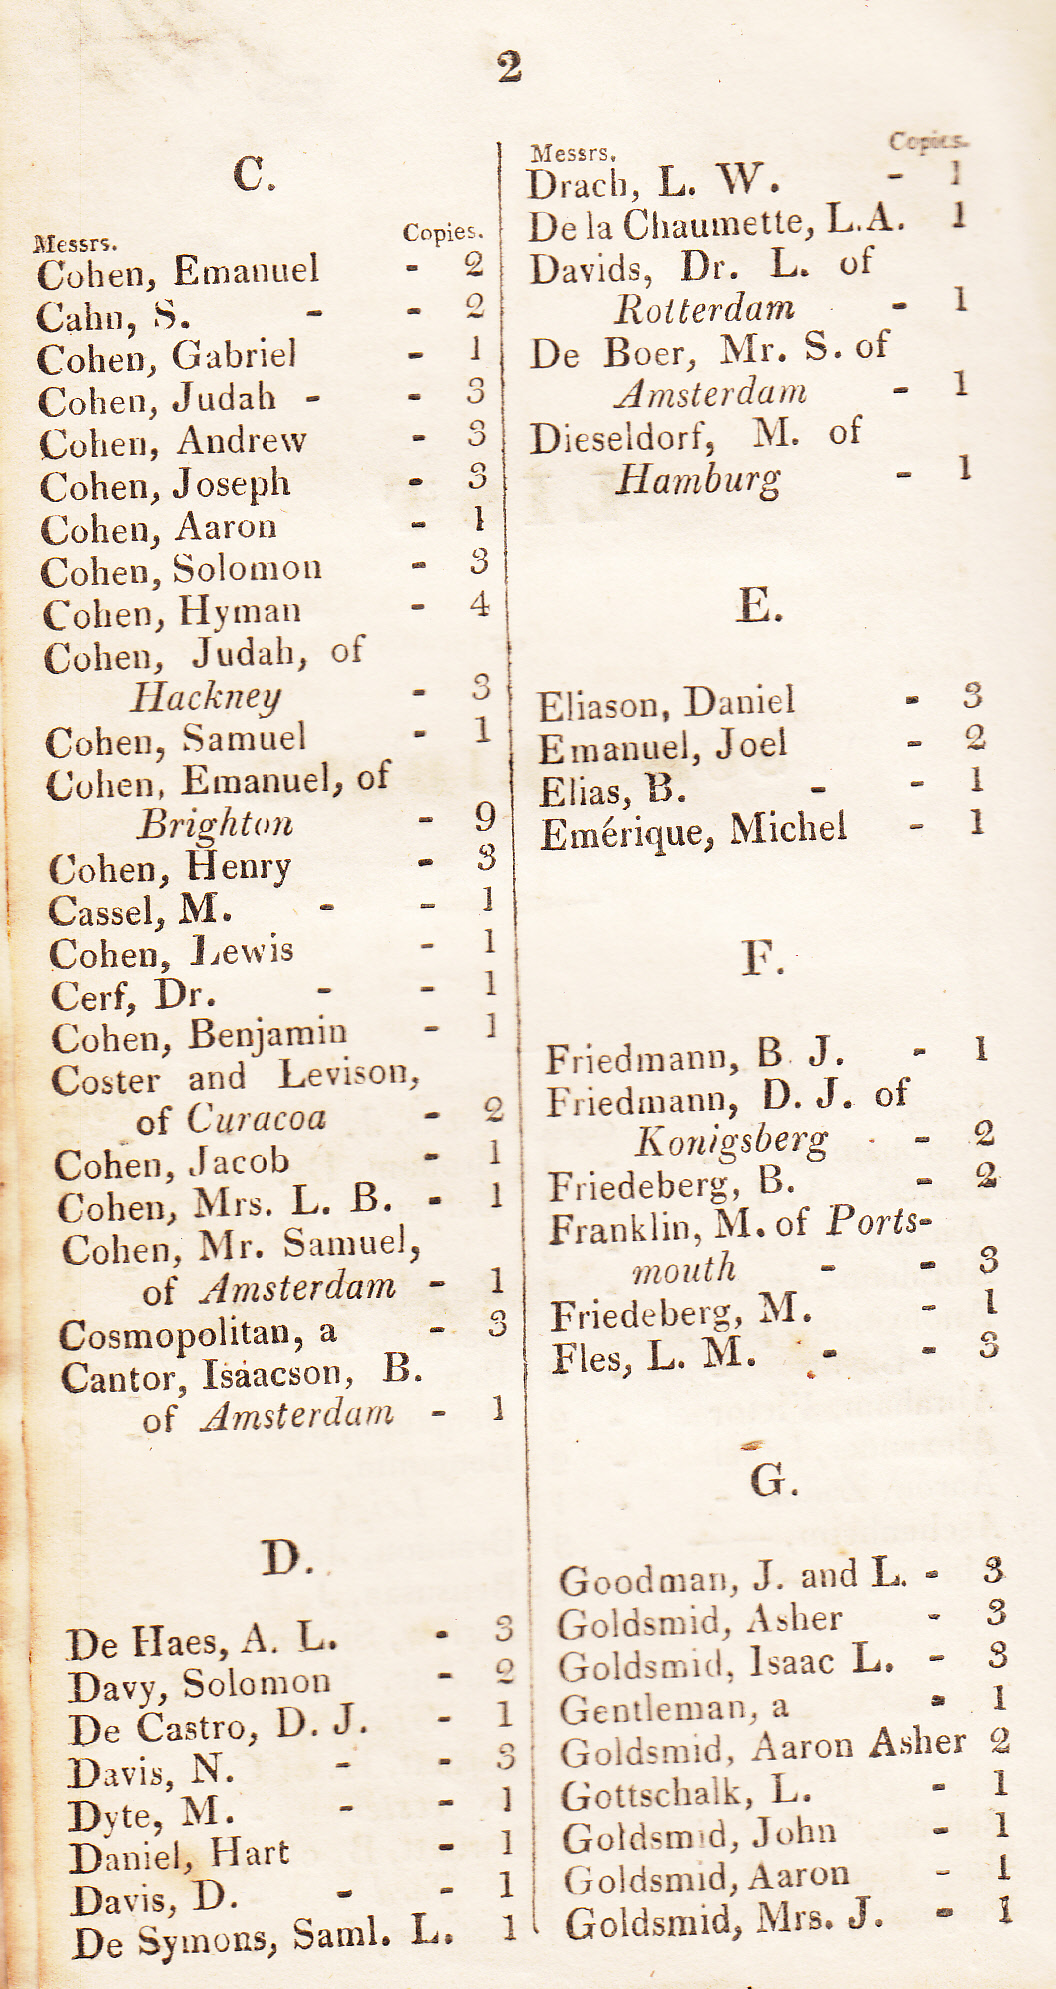 2
C.
Messrs. Copies.
Cohen, Emanuel - 2
Cahn, S. - - 2
Cohen, Gabriel - 1
Cohen, Judah - - 3
Cohen, Andrew - 3
Cohen, Joseph - 3
Cohen, Aaron - 1
Cohen, Solomon - 3
Cohen, Hyman - 4
Cohen, Judah, of
Hackney - 3
Cohen, Samuel - 1
Cohen, Emanuel, of
Brighton - 9
Cohen, Henry - 3
Cassel, M. - - 1
Cohen, Lewis - 1
Cerf, Dr. - - 1
Cohen, Benjamin - 1
Coster and Levison,
of Curacoa - 2
Cohen, Jacob - 1
Cohen, Mrs. L. B. - 1
Cohen, Mr. Samuel,
of Amsterdam - 1
Cosmopolitan, a - 3
Cantor, Isaacson, B.
of Amsterdam - 1
D.
De Haes, A. L. - 3
Davy, Solomon - 2
De Castro, D. J. - 1
Davis, N. - - 3
Dyte, M. - - 1
Daniel, Hart - 1
Davis, D. - - 1
De Symons, Saml. L. 1
Messrs. Copies.
Drach, L. W. - 1
De la Chaumette, L.A. 1
Davids, Dr. L. of
Rotterdam - 1
De Boer, Mr. S. of
Amsterdam - 1
Dieseldorf, M. of
Hamburg - 1
E.
Eliason, Daniel - 3
Emanuel, Joel - 2
Elias, B. - - 1
Emérique, Michel - 1
F.
Friedmann, B. J. - 1
Friedmann, D. J. of
Konigsberg - 2
Friedeberg, B. - 2
Franklin, M. of Ports-
mouth - - 3
Friedeberg, M. - 1
Fles, L. M. - - 3
G.
Goodman, J. and L. - 3
Goldsmid, Asher - 3
Goldsmid, Isaac L. - 3
Gentleman, a - 1
Goldsmid, Aaron Asher 2
Gottschalk, L. - 1
Goldsmid, John - 1
Goldsmid, Aaron - 1
Goldsmid, Mrs. J. - 1